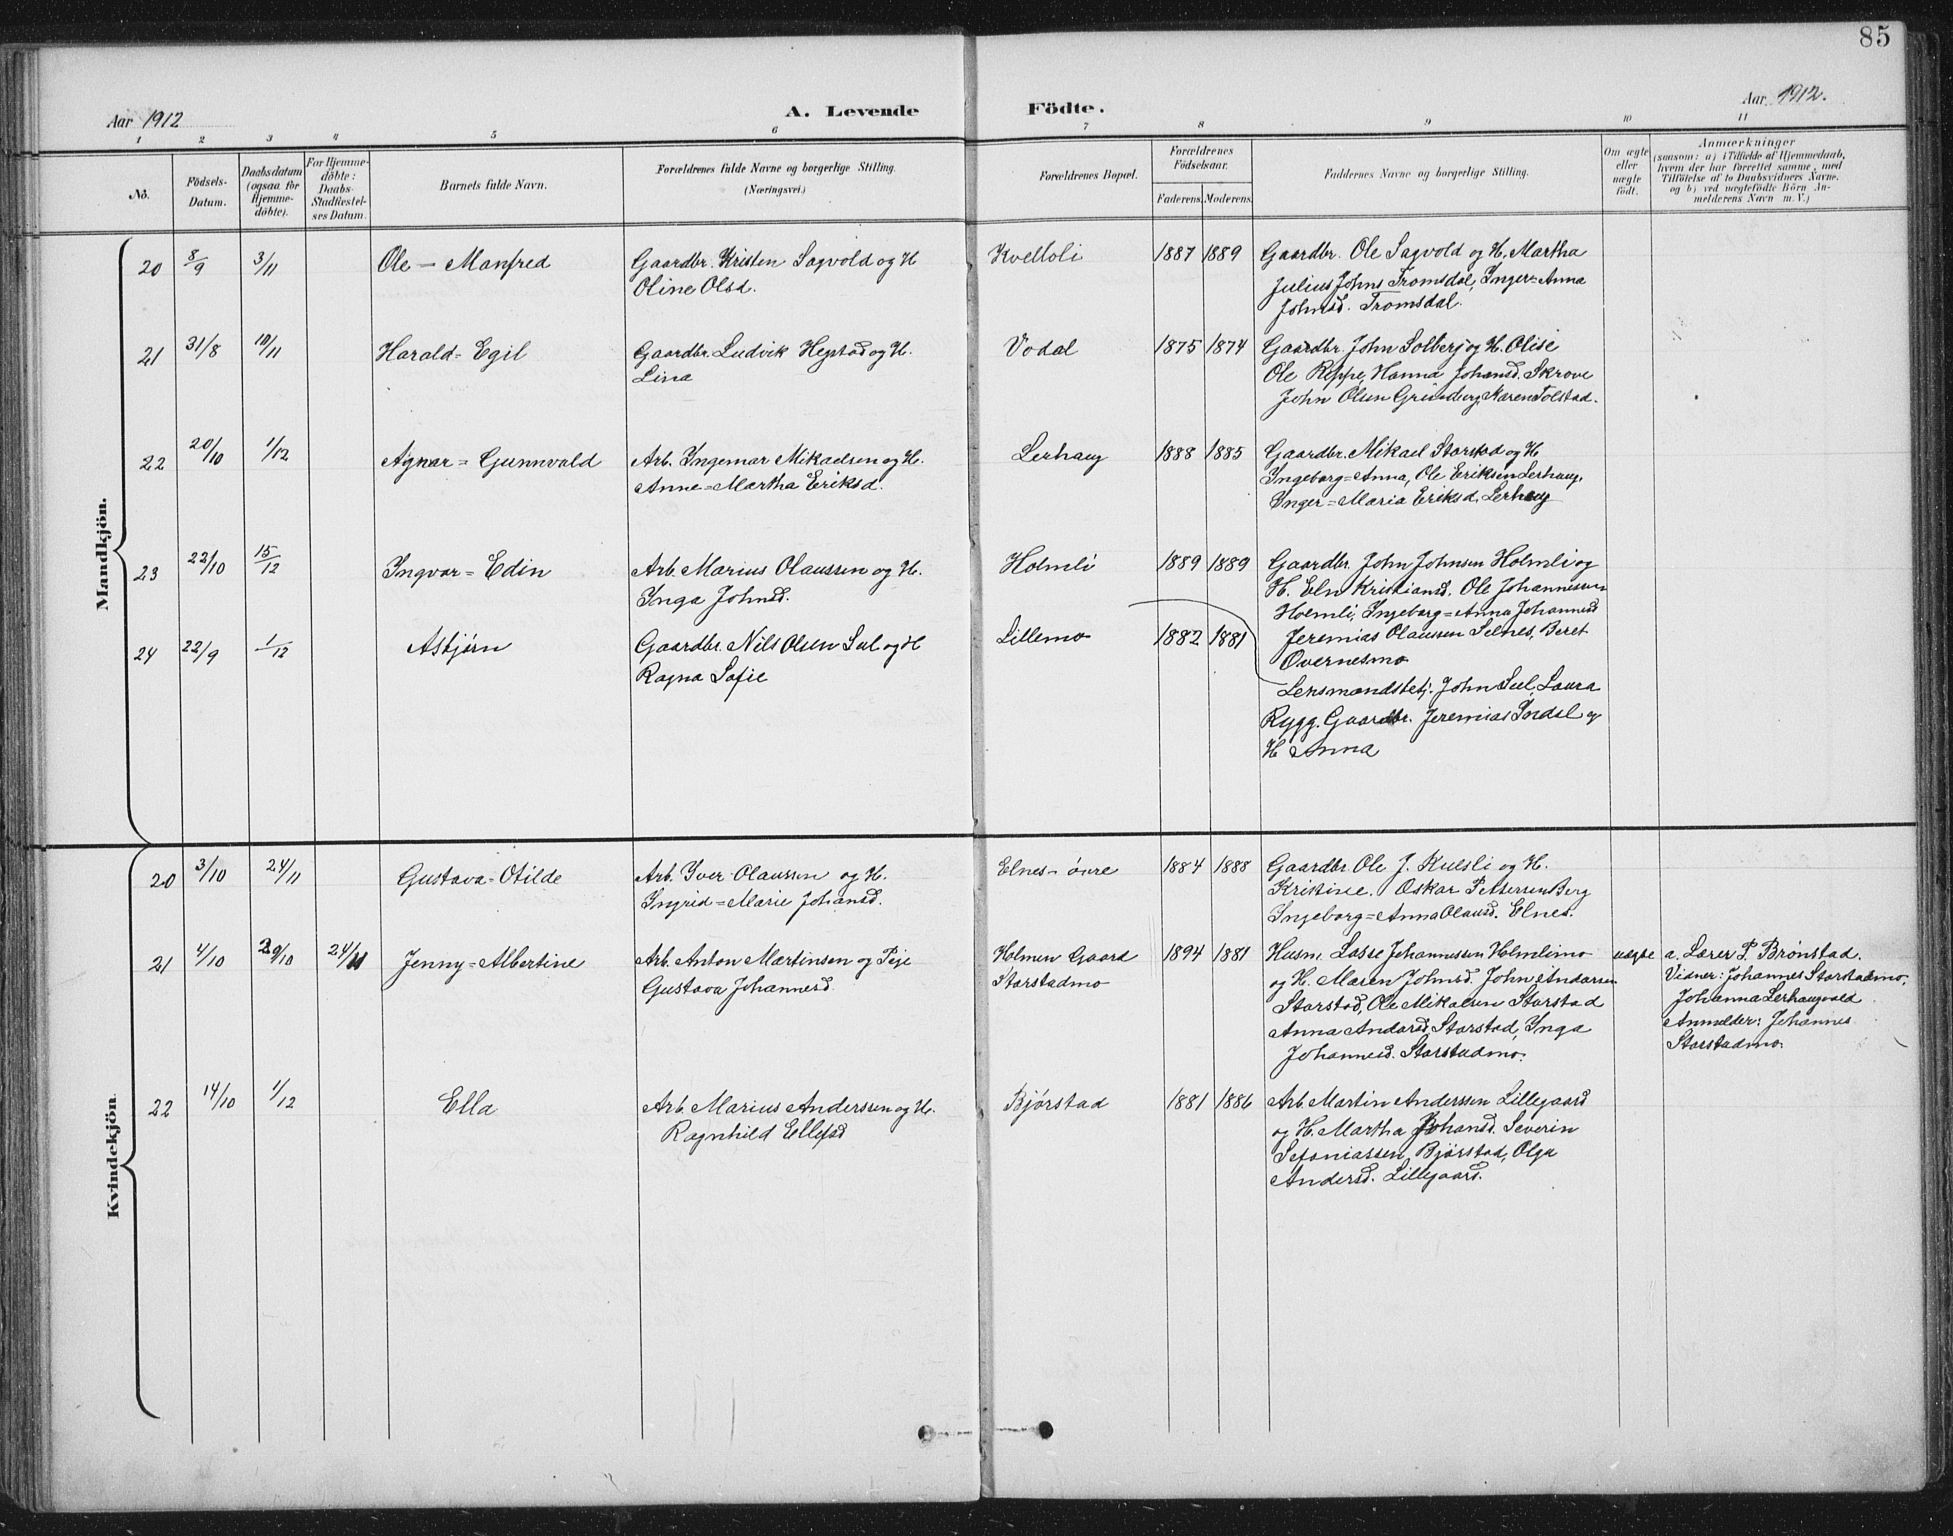 85
Aar 1912
A. Levende Födte.
Aar 1912.
1 2 3 4 5 6 7 8 9 10 11
No.
Födsels-Datum.
Daabsdatum (ogsaa for Hjemme-döbte).
For Hjemme-döbte: Daabs-Stadfæstel-ses Datum.
Barnets fulde Navn.
Forældrenes fulde Navne og borgerlige Stilling.
(Næringsvei.)
Forældrenes Bopæl.
Forældrenes Födselsaar.
Faderens. Moderens.
Faddernes Navne og borgerlige Stilling.
Om ægte eller uægte födt.
Anmærkninger
(saasom: a) i Tilfælde af Hjemmedaab,
hvem der har forrettet samme, med
Tilföielse af to Daabsvidners Navne.
og b) ved uægtefödte Börn An-
melderens Navn m. V.)
Mandkjön.
20 8/9 3/11 Ole - Manfred Gaardbr. Kristen Sagvold og H. Kvelloli 1887 1889 Gaardbr. Ole Sagvold og H. Martha
Oline Olsd. Julius Johns Tromsdal, Inger=Anna
Johnsd. Tromsdal.
21 31/8 10/11 Harald=Egil Gaardbr. Ludvik Hepstad og H. Vodal 1875 1874 Gaardbr. John Solberg og H. Olise
Lina Ole Reppe, Hanna Johansd. Skrove
John Olsen Grundberg, Karen Tolstad.
22 20/10 1/12 Agnar=Gunnvald Arb. Ingemar Mikaelsen og H. Lerhaug 1888 1885 Gaardbr. Mikael Storstad og H.
Anne=Martha Eriksd. Ingeborg=Anna, Ole Eriksen Lerhaug,
Inger=Maria Eriksd. Lerhaug
23 22/10 15/12 Ingvar=Edin Arb. Marius Olaussen og H. Holmli 1889 1889 Gaardbr. John Johnsen Holmli og
Inga Johnsd. H. Eln Kristiansd. Ole Johannessen
Holmli, Ingeborg=Anna Johannesd
24 22/9 1/12 Asbjørn Gaardbr. Nils Olsen Sul og H. Lillemo 1882 1881 Jeremias Olaussen Selnes, Beret
Ragna Sofie Overnesmo
Lensmandsbetj. John Sul, Laura
Rygg. Gaardbr. Jeremias Indal og
H. Anna
Kvindekjön.
20 3/10 24/11 Gustava=Otilde Arb. Iver Olaussen og H. Elnes-övre 1884 1888 Gaardbr. Ole J. Kuesli og H.
Ingrid=Marie Johansd. Kristine. Oskar Pettersen Berg
Ingeborg=Anna Olausd. Elnes.
21 4/10 29/10 24/11 Jenny=Albertine Arb. Anton Martinsen og Pige Holmen Gaard 1894 1881 Husm. Lasse Johannessen Holmlimo uægte a. Lærer P. Brønstad.
Gustava Johannesd. Storstadmo og H. Maren Johnsd. John Andorsen Vidner: Johannes Storstadmo,
Storstad, Ole Mikalsen Storstad Johanna Lerhaugvald
Anna Andorsd. Storstad, Inga Anmelder: Johannes
Johannesd. Storstadmo. Storstadmo.
22 14/10 1/12 Ella Arb. Marius Anderssen og H. Bjørstad 1881 1886 Arb. Martin Anderssen Lillegaard
Ragnhild Ellefsd og H. Martha Johansd. Severin
Sefaniassen Bjørstad, Olga
Andersd. Lillegaard.